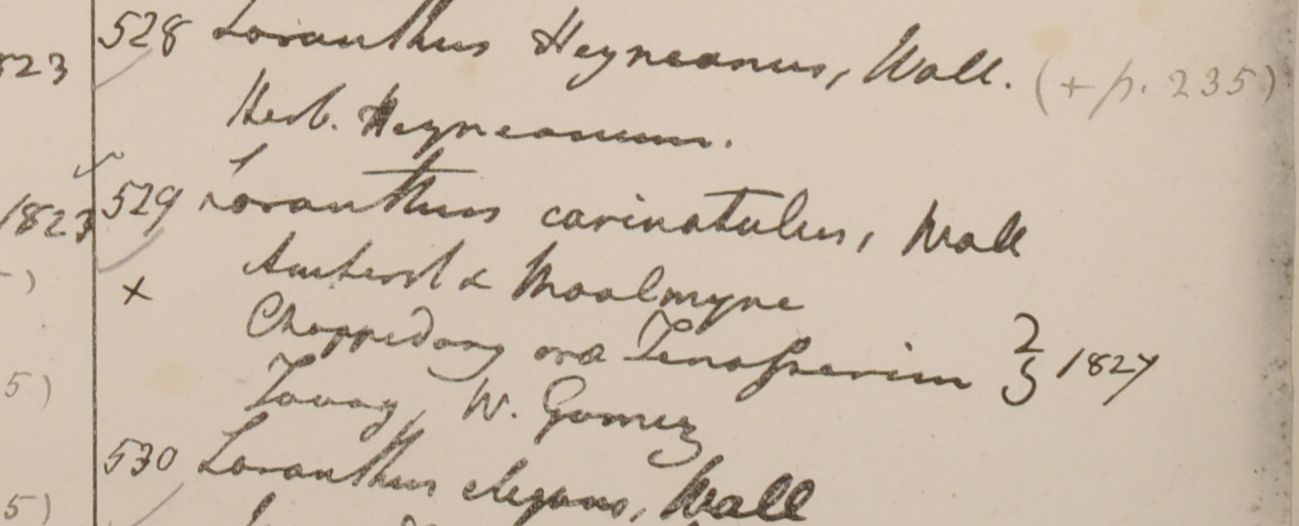 528 Loranthus Heyneanus, Wall. (+ p. 235)
823
Herb. Heyneanum.
1823 529 Loranthus carinatulus, Wall
Amherst & Moalmyne
x
Chappedong ora Tenasserim 2/3 1827
5) Tavoy, W. Gomez
530 Loranthus elegans, Wall
5)